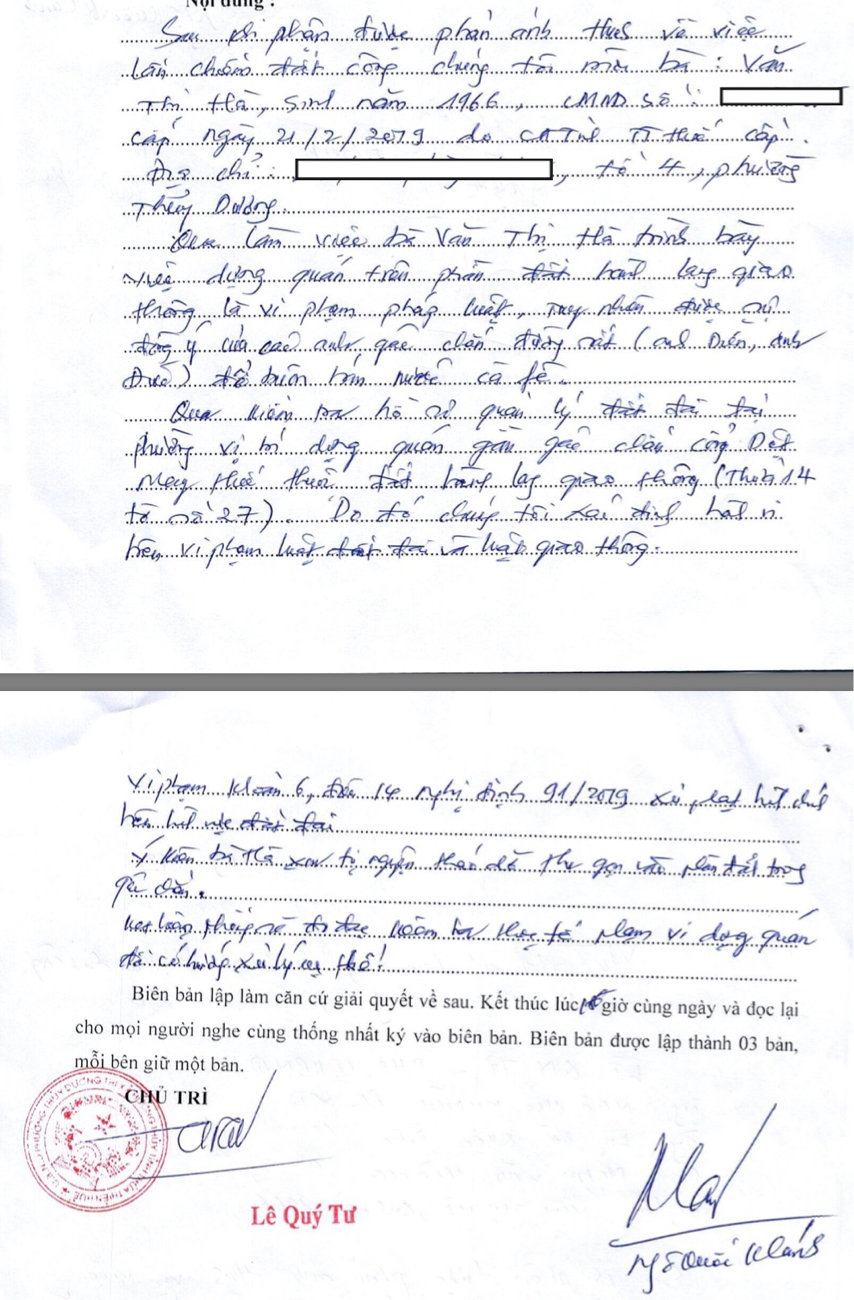 Nội dung :
Sau khi phận được phản ánh Hues về việc
lấn chiếm đất công chúng tôi mời bà : Văn
Thị Hà, Sinh năm 1966, CMND Số :
cấp ngày 21/2/2019 do CA Tỉnh TT Huế cấp.
Địa chỉ : , tổ 4, phường
Thủy Dương.
Qua làm việc bà Văn Thị Hà trình bày
việc dựng quán trên phần đất hành lang giao
thông là vi phạm pháp luật, nhận được sự
đồng ý của các anh gác chắn đường sắt (anh Diễn, anh
Đức) để buôn bán nước cà fê.
Qua kiểm tra hồ sơ quản lý đất đai tại
phường vị trí dựng quán gần gác chắn cổng Dệt
May Huế thuộc đất hành lang giao thông (Thửa 14
tờ số 27). Do đó chúng tôi xác định hành vi
trên vi phạm luật đất đai và luật giao thông.
Vi phạm khoản 6, điều 14 nghị định 91/2019 xử phạt
đất đai
Ý kiến bà Hà xin tự nguyện tháo dỡ thu gọn phần đất trong

kiểm tra thực tế phạm vi dựng quán
để có hướng xử lý cụ thể!
Biên bản lập làm căn cứ giải quyết về sau. Kết thúc lúc giờ cùng ngày và đọc lại
cho mọi người nghe cùng thống nhất ký vào biên bản. Biên bản được lập thành 03 bản,
mỗi bên giữ một bản.
CHỦ TRÌ
Lê Quý Tư
Ngô Quốc Khánh